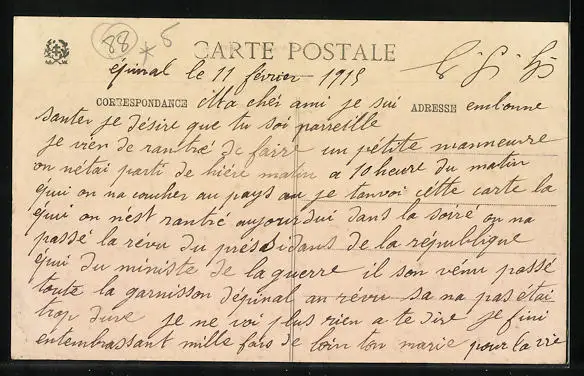 88 * 6
CARTE POSTALE
épinal le 11 février 1915
CORRESPONDANCE
ADRESSE
Ma chér ami je sui en bonne
santer je désire que tu soi parreille
je vien de rantré de faire un pétite manneuvre
on n'étai parti de hiére matin a 10 heure du matin
qui on na coucher au pays au je tanvoi cétte carte la
qui on n'est rantré aujourdui dans la soiré on na
passé la révu du présidans de la république
qui du ministe de la guerre il son vénu passé
toute la garnisson d'épinal an révu sa na pas étai
trop dure je ne voi plus rien a te dire je fini
entembrassant mille fois de loin ton marie pour la vie